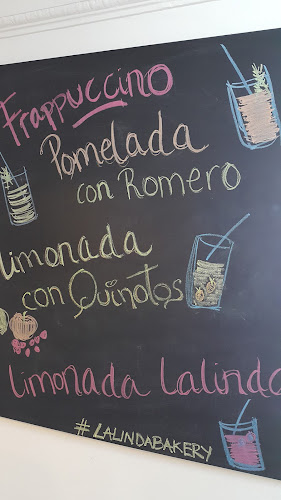 Frappuccino
Pomelada
con Romero
limonada
con Quinotos
limonada Lalinda
# LALINDABAKERY